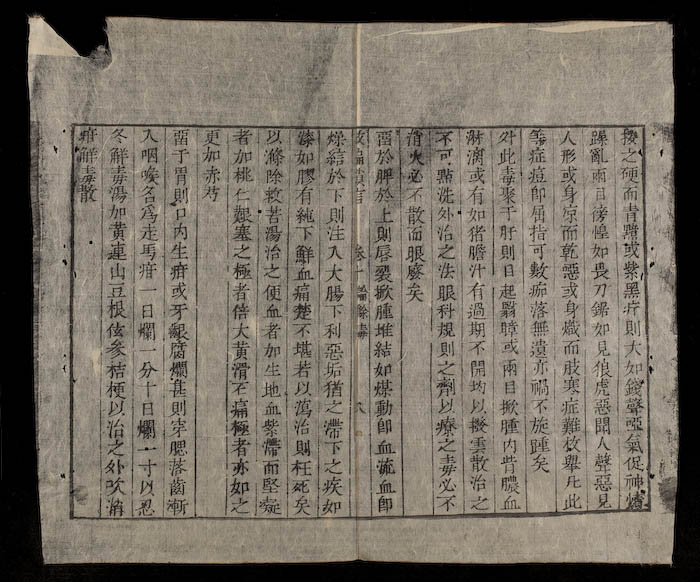 按之硬而青黯或紫黑疔則大如錢聲啞氣促神煩
躁亂兩目傍惶如畏刀鋸如見狼虎惡聞人聲惡見
人形或身凉而乾惡或身熾而肢寒症難枚舉凡此
等症痘即屈指可數痂落無遺亦禍不旋踵矣
外此毒聚于肝則目起翳障或兩目掀腫內眥膿血
淋漓或有如猪膽汁有過期不開均以撥雲散治之
不可點洗外治之法眼科規則之劑以療之毒必不
消火必不散而眼廢矣
畱於脾於上則唇裂掀腫堆結如煤動即血流血即
燥結於下則注入大腸下利惡垢猶之滯下之疾如
漆如膠有純下鮮血痛楚不堪若以瀉治則枉死矣
以滌除救苦湯治之便血者加生地血紫滯而堅凝
者加桃仁艱塞之極者倍大黃滑不痛極者亦如之
更加赤芍
畱于胃則口內生疳或牙齦腐爛甚則穿腮落齒漸
入咽喉名爲走馬疳一日爛一分十日爛一寸以忍
冬解毒湯加黃連山豆根玄參桔梗以治之外吹清
疳解毒散